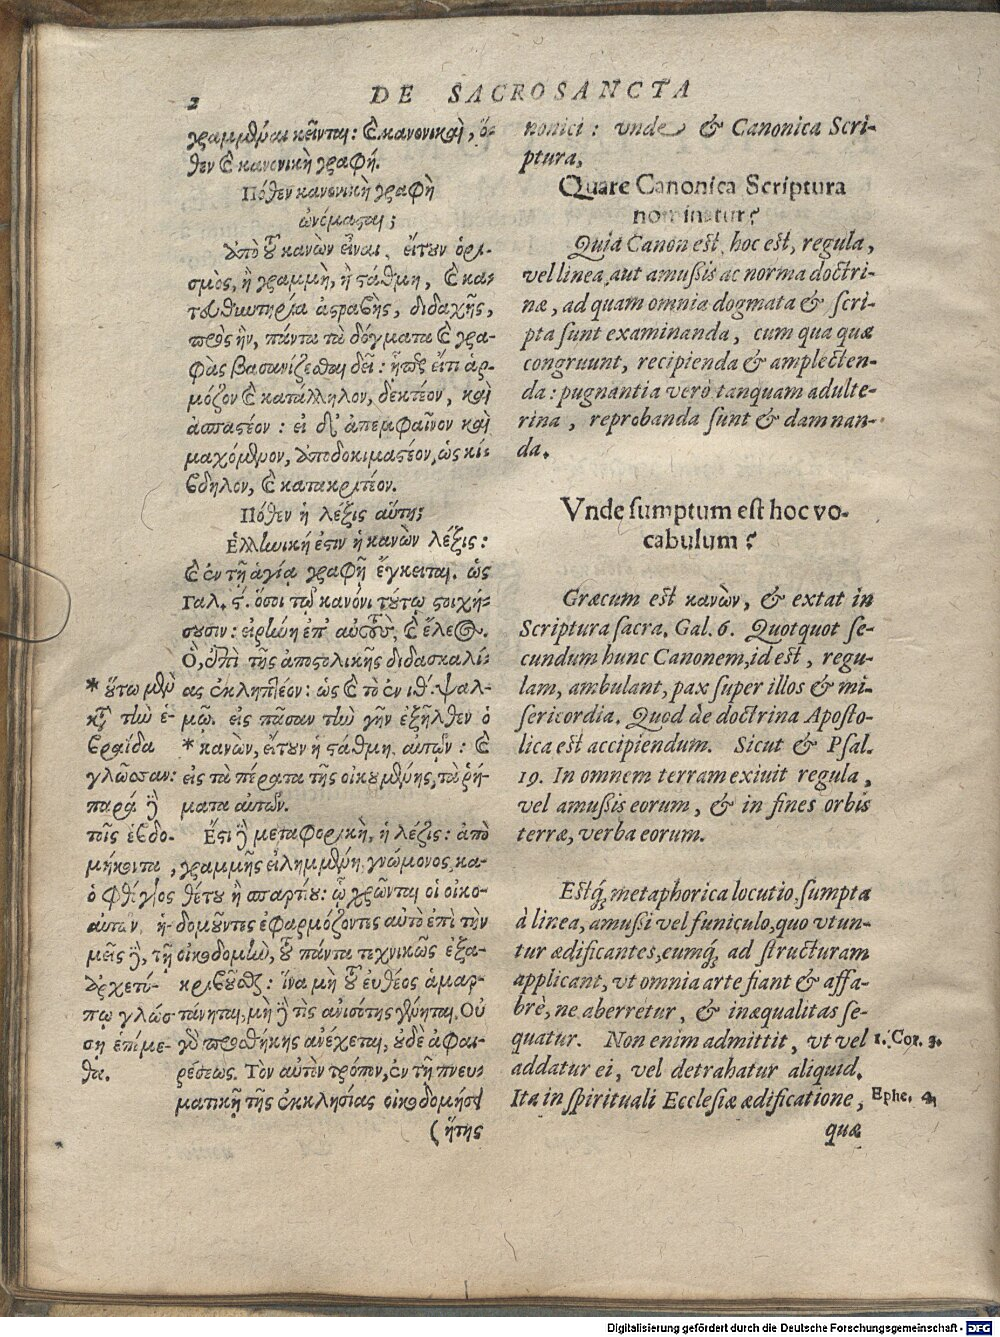 2
DE SACROSANCTA
γραμμέναι κεῖνται: καὶ κανονικαὶ, ὅ-
θεν καὶ κανονικὴ γραφή.
Πόθεν κανονικὴ γραφὴ
ὠνόμασται;
Ἀπὸ τοῦ κανὼν εἶναι, εἴτουν ὁρι-
σμὸς, ἢ γραμμὴ, ἢ στάθμη, καὶ κα-
τευθυντηρία ἀστραβὴς, διδαχῆς,
πρὸς ἣν, πάντα τὰ δόγματα καὶ γρα-
φὰς βασανίζεσθαι δεῖ: ἧπερ εἴτι ἁρ-
μόζον καὶ κατάλληλον, δεκτέον, καὶ
ἀσπαστέον: εἰ δ' ἀπεμφαῖνον καὶ
μαχόμενον, ἀποδοκιμαστέον, ὡς κί-
βδηλον, καὶ κατακριτέον.
Πόθεν ἡ λέξις αὕτη;
Ἑλληνική ἐστιν ἡ κανὼν λέξις:
καὶ ἐν τῇ ἁγίᾳ γραφῇ ἔγκειται. ὡς
Γαλ. ϛ. ὅσοι τῷ κανόνι τούτῳ στοιχή-
σουσιν: εἰρήνη ἐπ' αὐτοὺς, καὶ ἔλεος.
Ὃ, ἐπὶ τῆς ἀποστολικῆς διδασκαλί-
ας ἐκληπτέον: ὡς καὶ τὸ ἐν ιθ. ψαλ-
μῷ. εἰς πᾶσαν τὴν γῆν ἐξῆλθεν ὁ
* κανὼν, εἴτουν ἡ στάθμη, αὐτῶν: καὶ
εἰς τὰ πέρατα τῆς οἰκουμένης, τὰ ῥή-
ματα αὐτῶν.
Ἔστι δὲ μεταφορικὴ, ἡ λέξις: ἀπὸ
γραμμῆς εἰλημμένη, γνώμονος, κα-
θέτου ἢ σπαρτίου: ᾧ χρῶνται οἱ οἰκο-
δομοῦντες ἐφαρμόζοντες αὐτὸ ἐπὶ τὴν
τῇ οἰκοδομὴν, τοῦ πάντα τεχνικῶς ἐξα-
κριβοῦσθαι: ἵνα μὴ τοῦ εὐθέος ἁμαρ-
τάνηται, μὴ δέ τις ἀνισότης γένηται. Οὐ
γὰρ προσθήκης ἀνέχεται, οὐδὲ ἀφαι-
ρέσεως. Τὸν αὐτὸν τρόπον, ἐν τῇ πνευ-
ματικῇ τῆς ἐκκλησίας οἰκοδομήσει
(ἥτις
* οὕτω μὲν
κατὰ τὴν ἑ-
βραίδα
γλῶσσαν:
παρὰ δὲ
τοῖς ἑβδο-
μήκοντα,
ὁ φθόγγος
αὐτῶν, ἡ-
μεῖς δὲ,
ἀρχετύ-
πῳ γλώσ-
σῃ ἑπόμε-
θα.
nonici: vnde & Canonica Scri-
ptura,
Quare Canonica Scriptura
nominatur?
Quia Canon est, hoc est, regula,
vel linea, aut amußis ac norma doctri-
næ, ad quam omnia dogmata & scri-
pta sunt examinanda, cum qua quæ
congruunt, recipienda & amplecten-
da: pugnantia verò tanquam adulte-
rina, reprobanda sunt & damnan-
da.
Vnde sumptum est hoc vo-
cabulum?
Græcum est κανὼν, & extat in
Scriptura sacra. Gal. 6. Quotquot se-
cundum hunc Canonem, id est, regu-
lam, ambulant, pax super illos & mi-
sericordia. Quod de doctrina Aposto-
lica est accipiendum. Sicut & Psal.
19. In omnem terram exiuit regula,
vel amußis eorum, & in fines orbis
terræ, verba eorum.
Estq́; metaphorica locutio, sumpta
à linea, amußi vel funiculo, quo vtun-
tur ædificantes, eumq́; ad structuram
applicant, vt omnia arte fiant & affa-
brè, ne aberretur, & inæqualitas se-
quatur. Non enim admittit, vt vel
addatur ei, vel detrahatur aliquid.
Ita in spirituali Ecclesiæ ædificatione,
quæ
1. Cor. 3.
Ephe. 4.
Digitalisierung gefördert durch die Deutsche Forschungsgemeinschaft - DFG